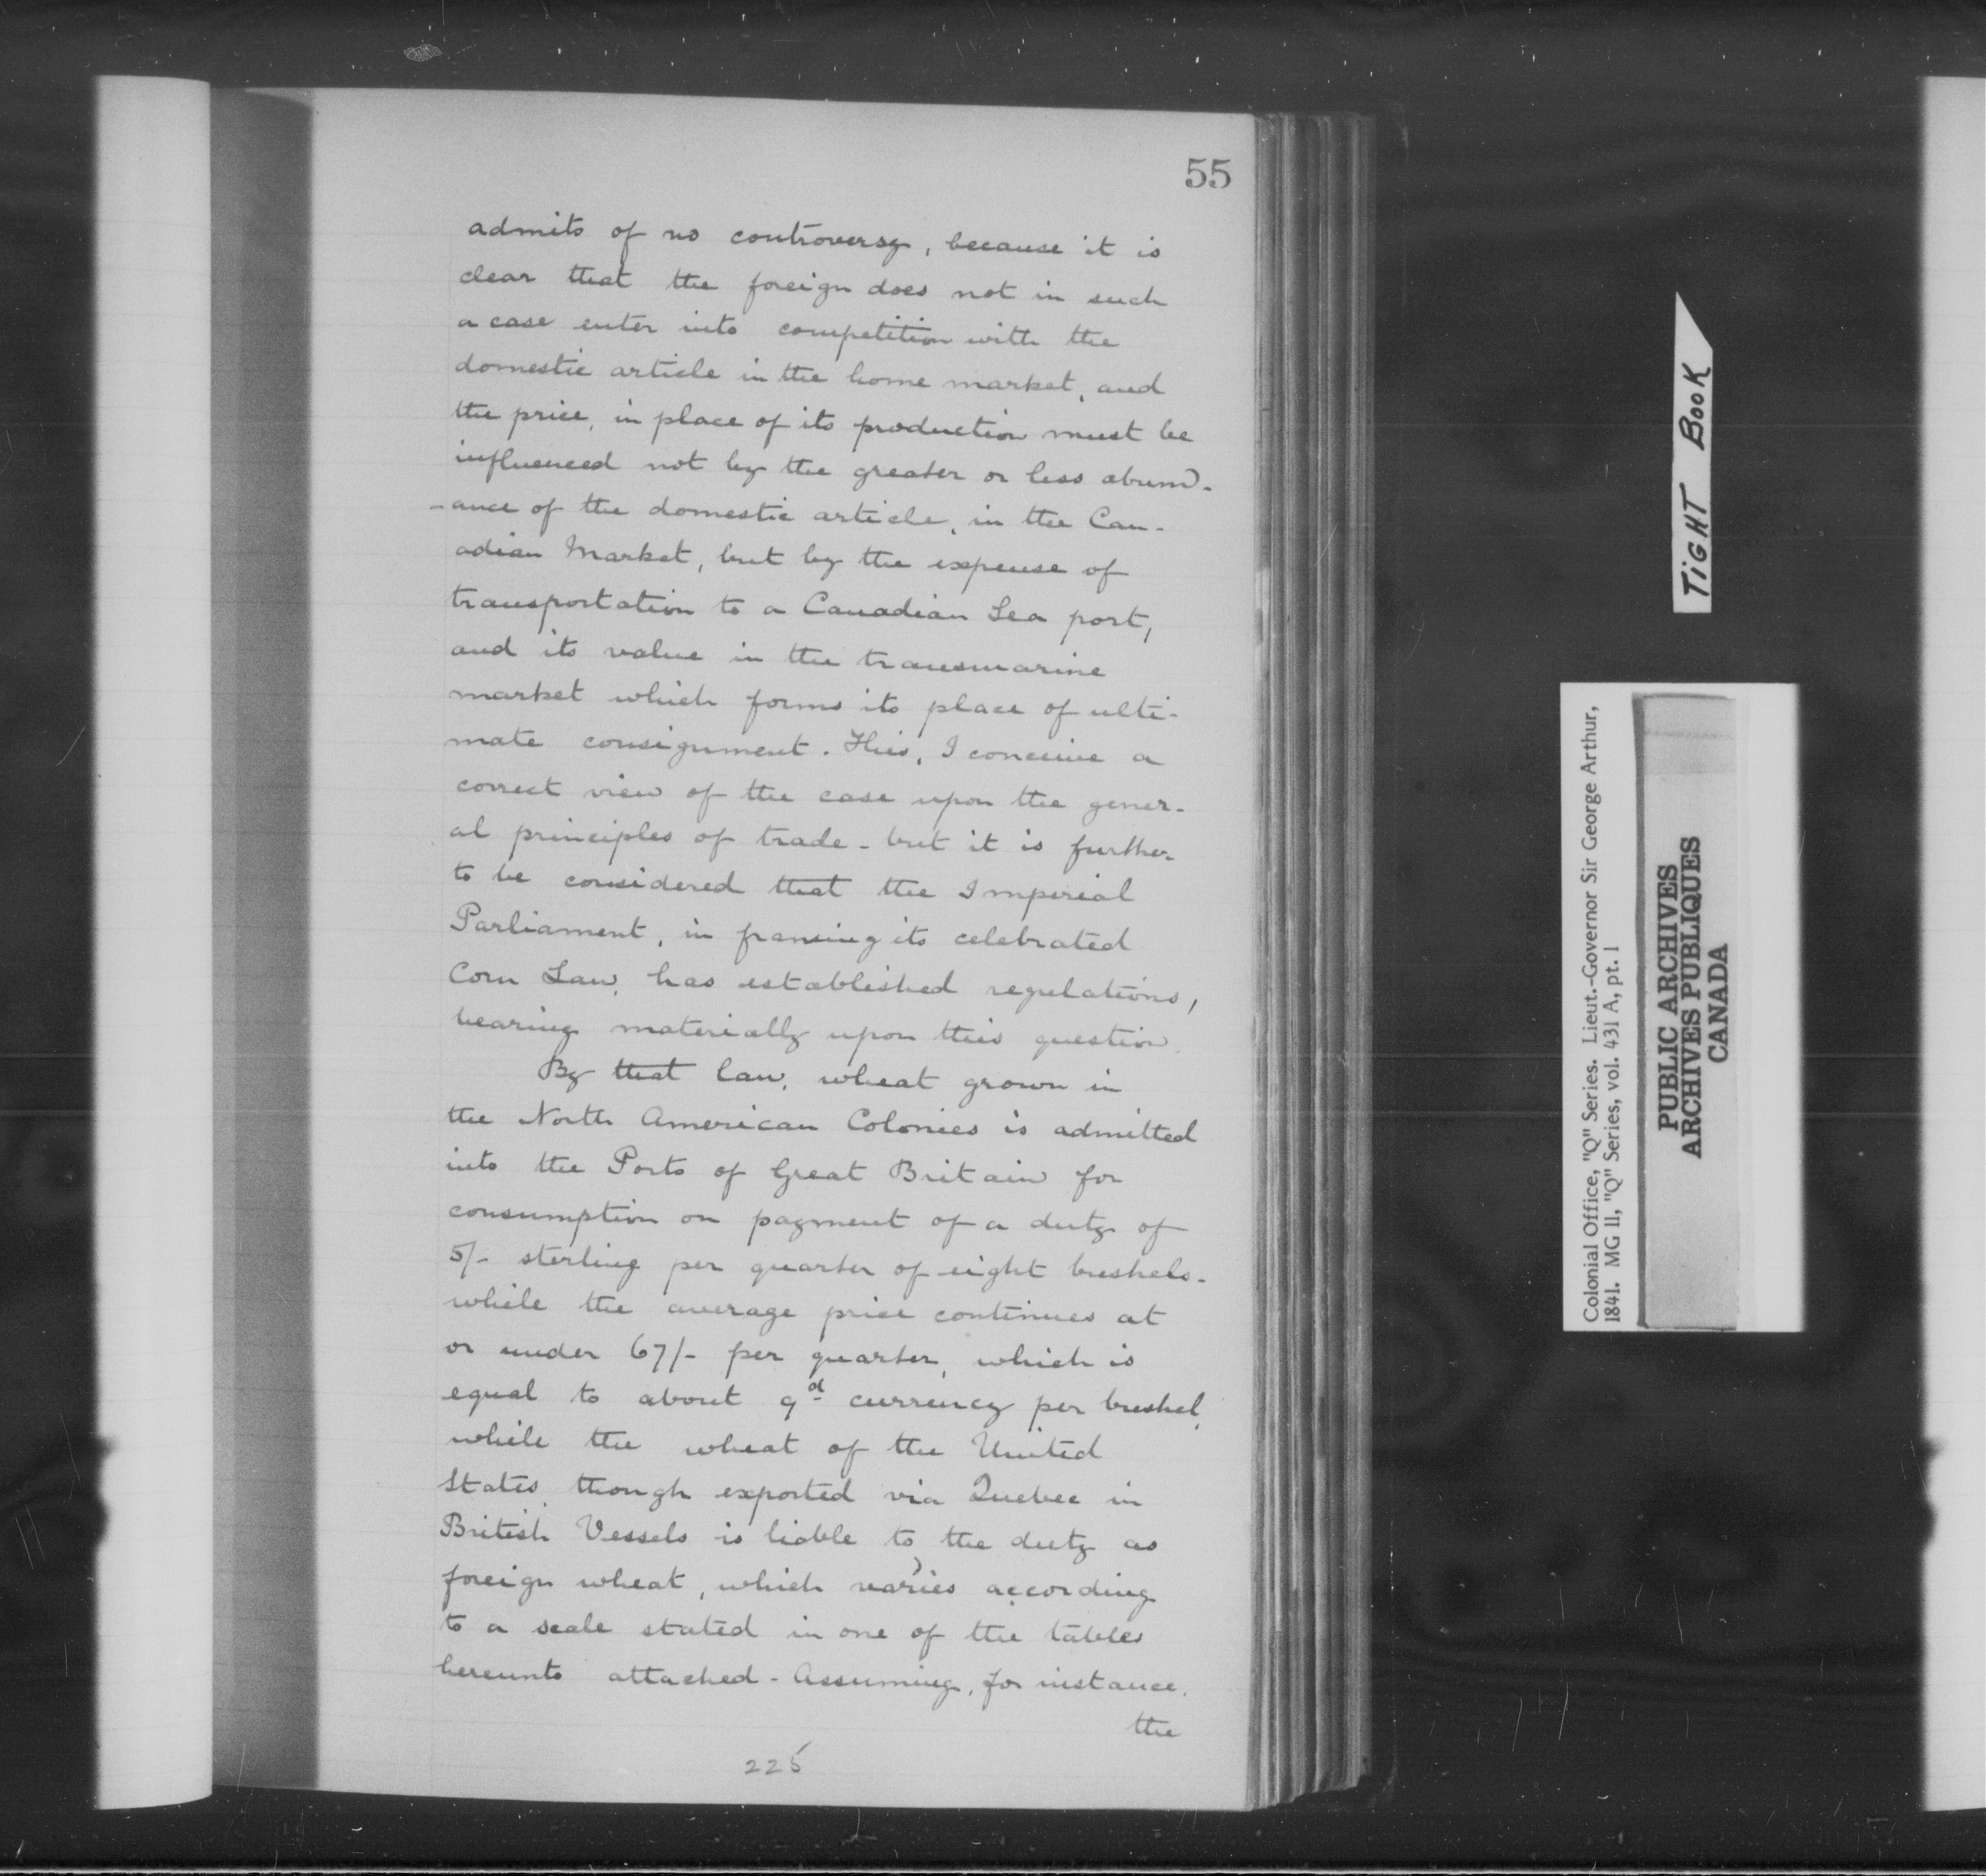 55
admits of no controversy, because it is
clear that the foreign does not in such
a case enter into competition with the
domestic article in the home market, and
the price, in place of its production must be
influenced not by the greater or less abund-
-ance of the domestic article, in the Can-
adian Market, but by the expense of
transportation to a Canadian Sea port,
and its value in the transmarine
market which forms its place of ulti-
mate consignment. This, I conceive a
correct view of the case upon the gener-
al principles of trade - but it is further
to be considered that the Imperial
Parliament, in framing its celebrated
Corn Law, has established regulations,
bearing materially upon this question.
By that law, wheat grown in
the North American Colonies is admitted
into the Ports of Great Britain for
consumption on payment of a duty of
5/- sterling per quarter of eight bushels -
while the average price continues at
or under 67/- per quarter, which is
equal to about 9d currency per bushel,
while the wheat of the United
States, though exported via Quebec in
British Vessels is liable to the duty as
foreign wheat, which varies according
to a scale stated in one of the tables
hereunto attached - Assuming, for instance,
the
225
TIGHT BOOK
Colonial Office, "Q" Series. Lieut.-Governor Sir George Arthur,
1841. MG 11, "Q" Series, vol. 431 A, pt. 1
PUBLIC ARCHIVES
ARCHIVES PUBLIQUES
CANADA